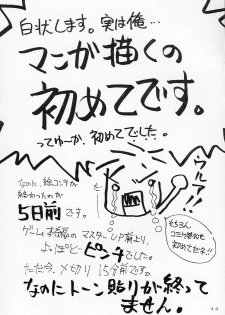 白状します。実は俺…
マンガ描くの
初めてです。
ってゆーか、初めてでした。
ウルァ!!
なのに、絵コンテが
終わったのが
5日前です。
だ
だ
もちろん
コミケ参加も
初めてだネ!!
ゲーム本編のマスターUP前より、
よっぽどピンチでした。
ただ今、〆切り15分前です。
なのにトーン貼りが終って
ません。